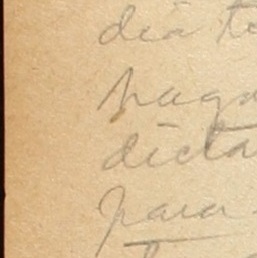 dia te
haga
dicta
para